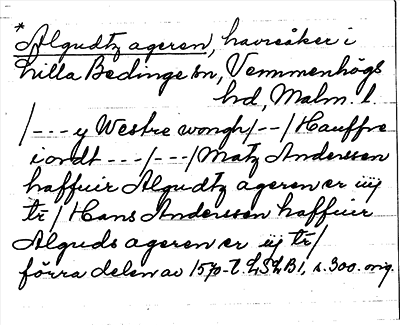 * Algudtz ageren, havreåker i
Lilla Bedinge sn, Vemmenhögs
hd, Malm. l.
/--- y Westre wongh/--/ Hauffre
iordt ---/---/ Matz Anderssen
haffuir Algudtz ageren er iiij
tr/ Hans Anderssen haffuir
Alguds ageren er iij tr/
förra delen av 1570-t. LSLB1, s. 300. orig.